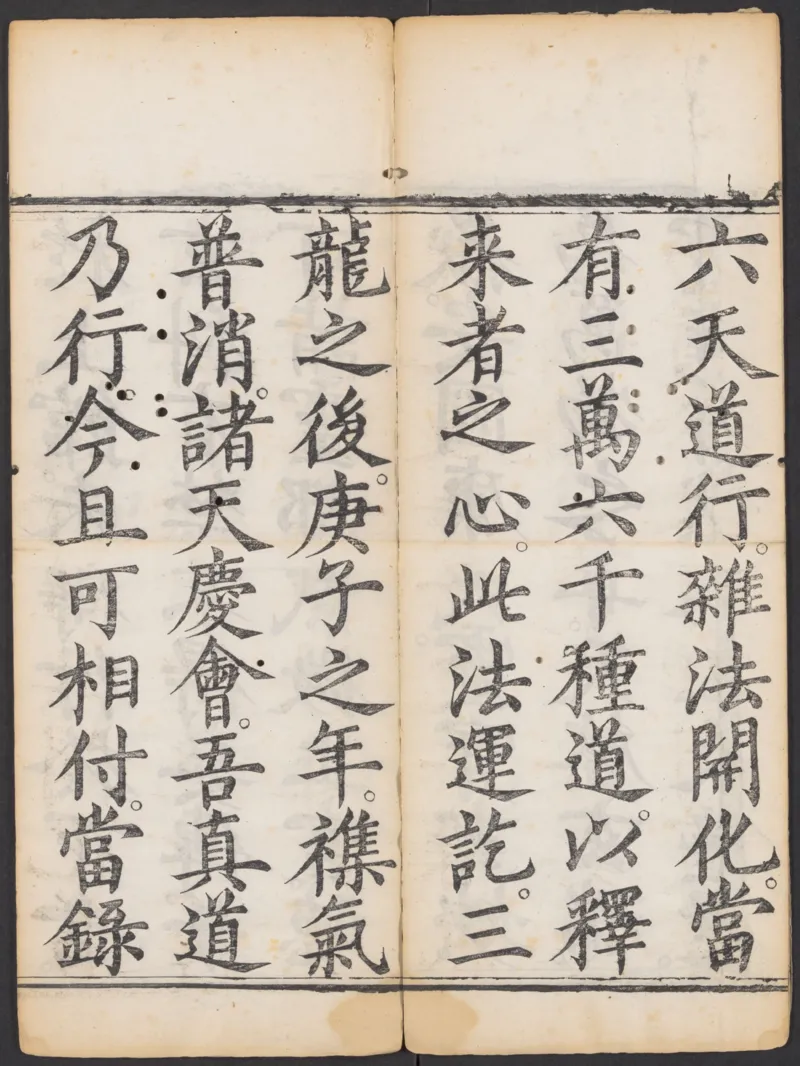 六天道行。雜法開化。當
有三萬六千種道。以釋
来者之心。此法運訖。三
龍之後。庚子之年。襍氣
普消。諸天慶會。吾真道
乃行。今且可相付。當錄